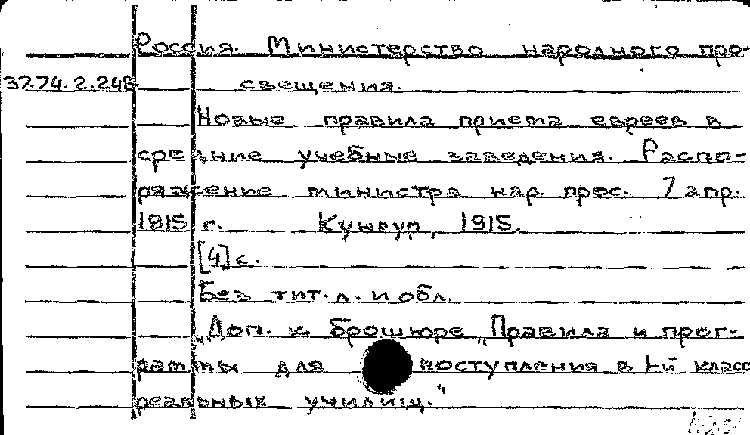 Россия. Министерство народного про-
37.74.2.248 свещения.
Новые правила приема евреев в
средние учебные заведения. Распо-
ряжение министра нар. прос. 7 апр.
1915 г. Кунгур, 1915.
[4] с.
Без тит. л. и обл.
"Доп. к брошюре „Правила и прог-
раммы для поступления в I-й класс
реальных училищ."